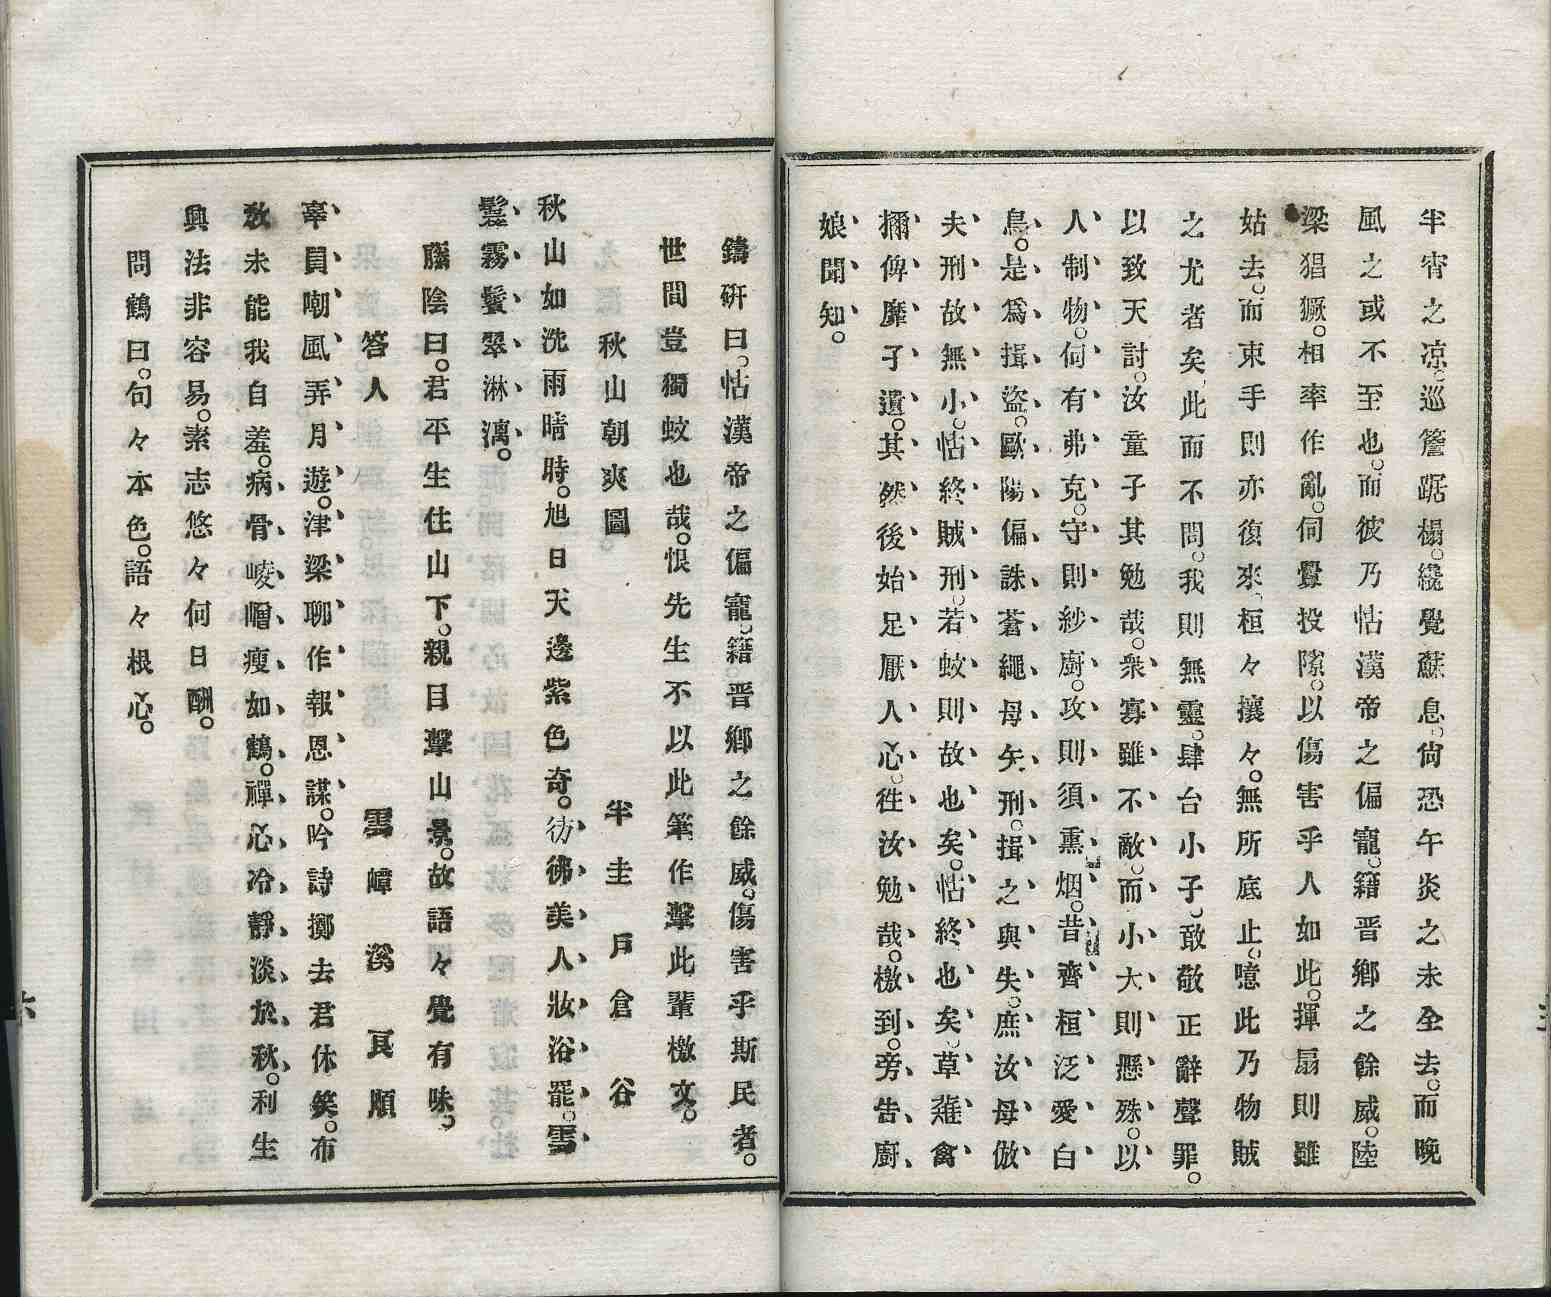 半宵之凉。巡簷踞榻。纔覺蘇息。尙恐午炎之未全去。而晚
風之或不至也。而彼乃怙漢帝之偏寵。籍晋鄕之餘威。陸
梁猖獗。相率作亂。伺釁投隙。以傷害乎人如此。揮扇則雖
姑去。而束手則亦復來。桓々攘々。無所底止。噫此乃物賊
之尤者矣。此而不問。我則無靈。肆台小子。敢敬正辭聲罪。
以致天討。汝童子其勉哉。衆寡雖不敵。而小大則懸殊。以
人制物。何有弗克。守則紗厨。攻則須熏烟。昔齊桓泛愛白
鳥。是爲揖盜。歐陽偏誅蒼繩。毋矢刑。揖之與失。庶汝毋倣
夫刑故無小。怙終賊刑。若蚊則故也矣。怙終也矣。草薙禽
獮俾靡孑遺。其然後始足厭人心。徃汝勉哉。檄到。旁告厨
娘聞知。
鑄硏曰。怙漢帝之偏寵。籍晋鄕之餘威。傷害乎斯民者。
世間豈獨蚊也哉。恨先生不以此筆作擊此輩檄文。
秋山朝爽圖　半圭　戶倉　谷
秋山如洗雨晴時。旭日天邊紫色奇。彷彿美人妝浴罷。雲
鬟霧鬢翠淋漓。
藤陰曰。君平生住山下。親目擊山景。故語々覺有味。
答人　雲嶂　溪　良順
宰員嘲風弄月遊。津梁聊作報恩謀。吟詩擲去君休笑。布
敎未能我自羞。病骨崚嶒瘦如鶴。禪心冷靜淡於秋。利生
興法非容易。素志悠々何日酬。
問鶴曰。句々本色。語々根心。
六